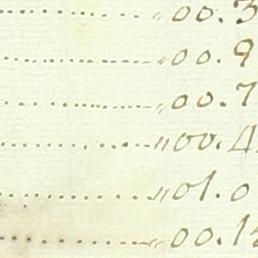 ........ „00.3
........ „00.9
........ „00.7
........ „00.4
........ „01.0
........ „00.1